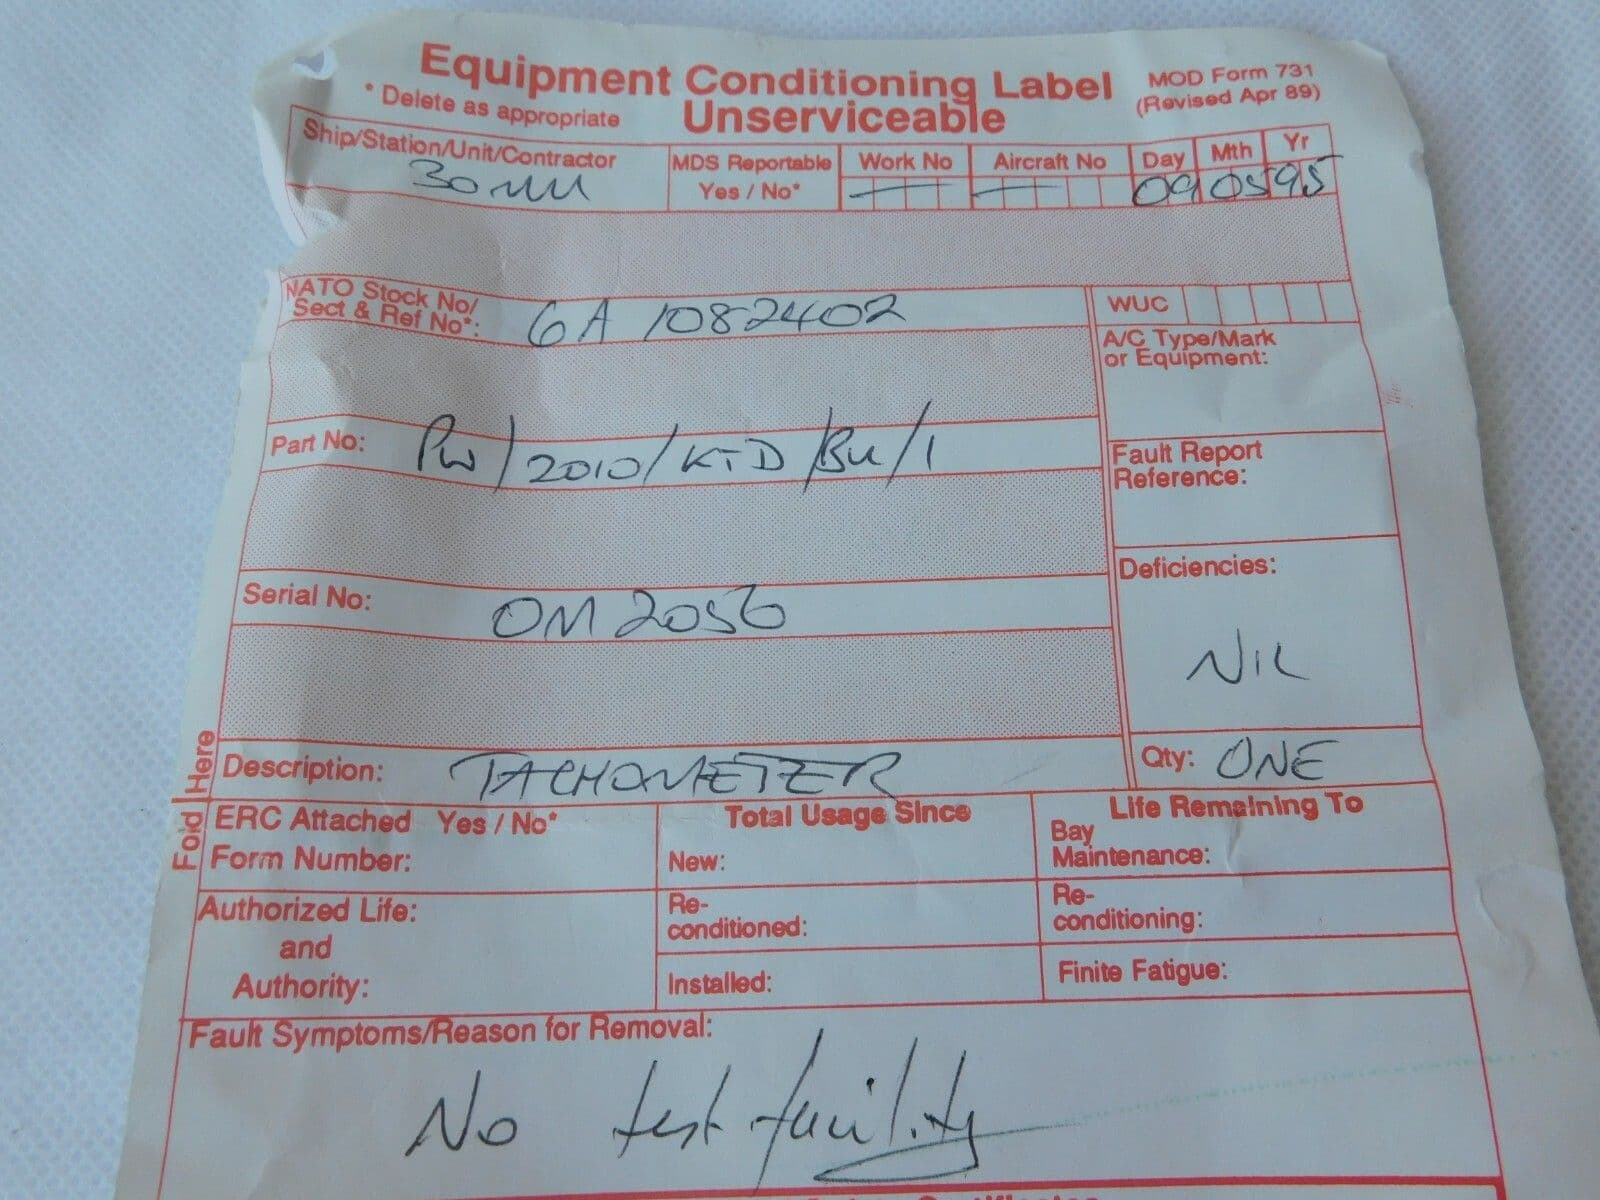 Equipment Conditioning Label
Unserviceable
MOD Form 731
(Revised Apr 89)
* Delete as appropriate
Ship/Station/Unit/Contractor
30 MU
MDS Reportable
Yes / No*
Work No
Aircraft No
Day Mth Yr
09 05 95
NATO Stock No/
Sect & Ref No*: 6A 1082402
WUC
A/C Type/Mark
or Equipment:
Part No: PW/2010/KTD/BU/1
Fault Report
Reference:
Serial No: OM 2056
Deficiencies:
NIL
Description: TACHOMETER
Qty: ONE
Fold Here
ERC Attached Yes / No*
Form Number:
Authorized Life:
and
Authority:
Total Usage Since
New:
Re-
conditioned:
Installed:
Life Remaining To
Bay
Maintenance:
Re-
conditioning:
Finite Fatigue:
Fault Symptoms/Reason for Removal:
No test facility